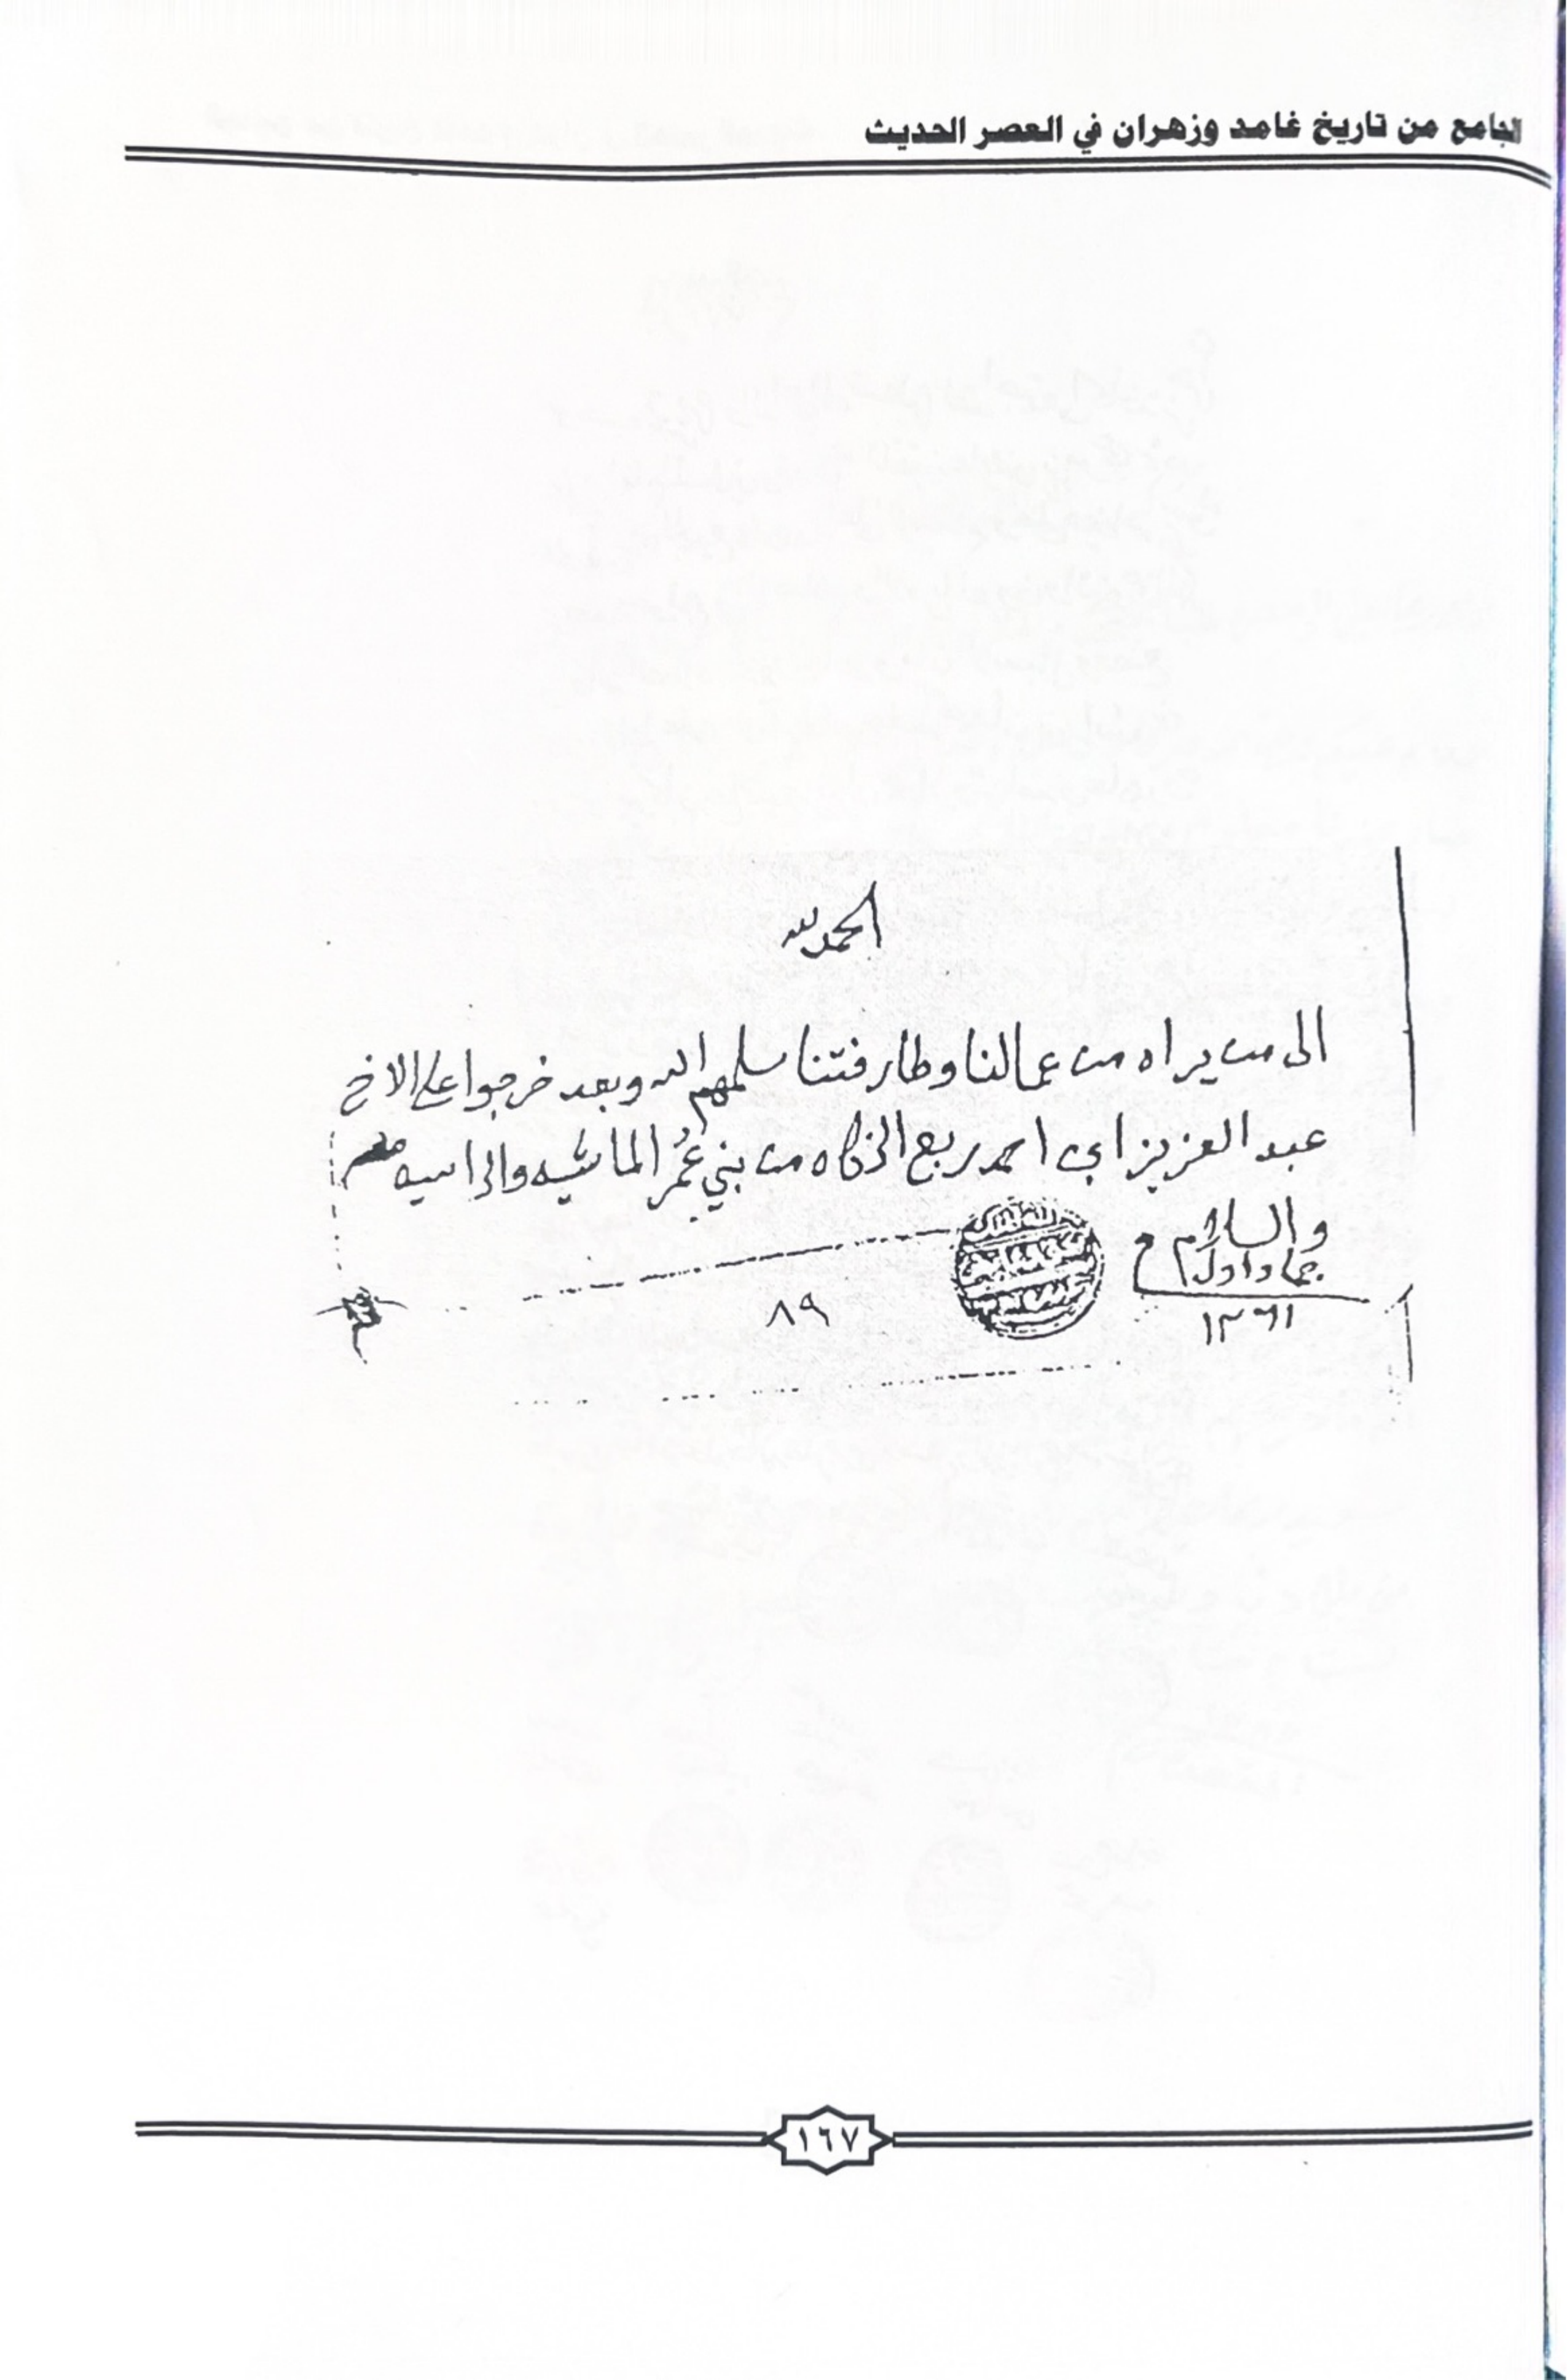 الجامع من تاريخ غامد وزهران في العصر الحديث
الحمد لله
الى من يراه من عمالنا وطارفتنا سلمهم الله وبعد خرجوا على الاخ
عبد العزيز ابن احمد ربع الزكاه من بني عُمر الماشيه والراسيه
والسلام
جماد اول
١٣٦١
٨٩
١٦٧